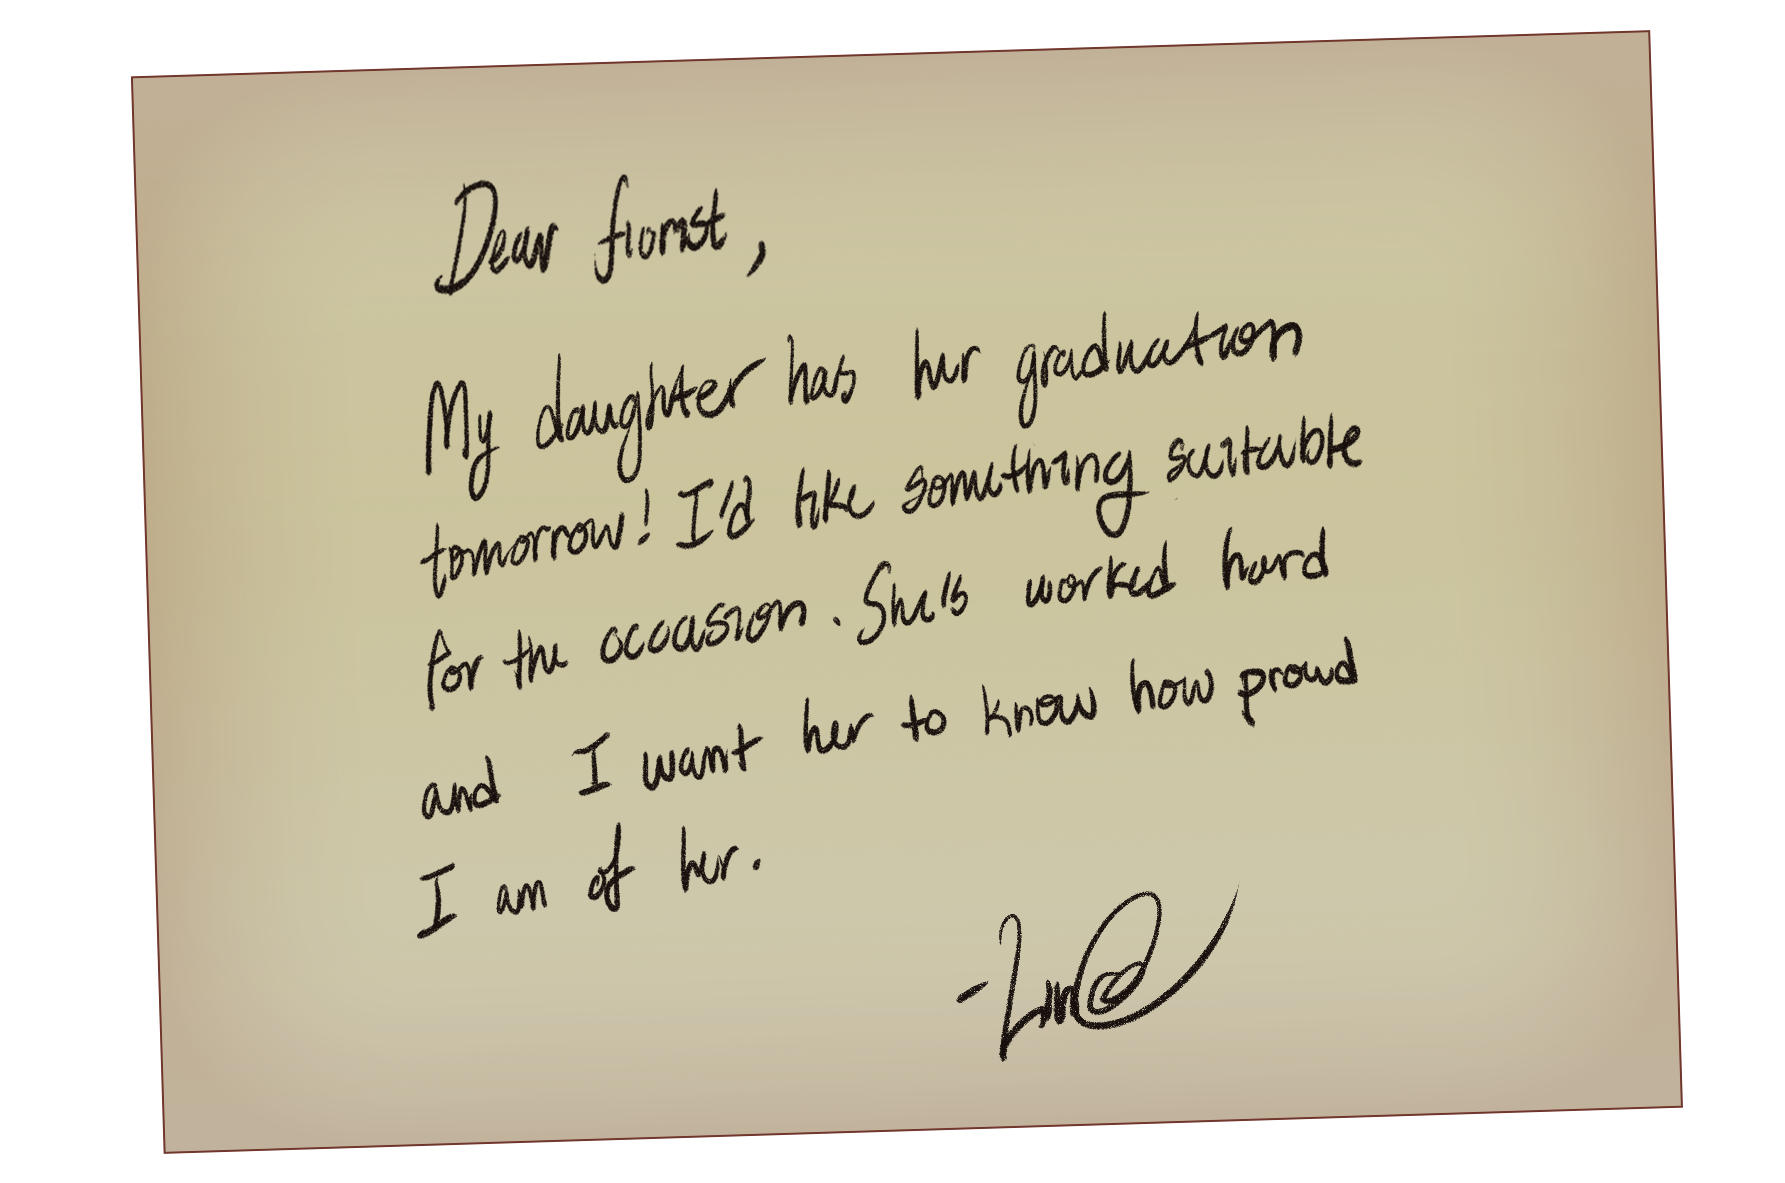 Dear florist,
My daughter has her graduation
tomorrow! I'd like something suitable
for the occasion. She's worked hard
and I want her to know how proud
I am of her.